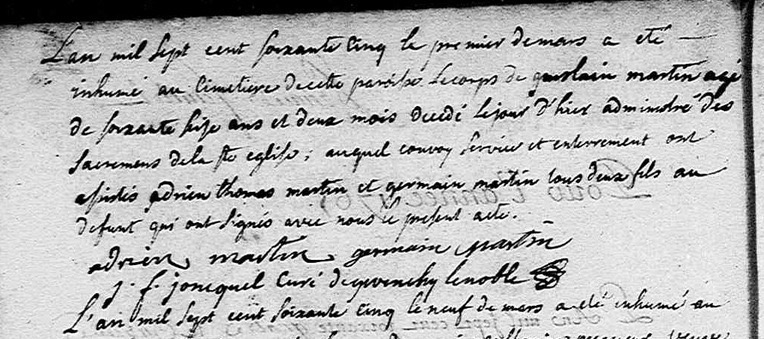 L'an mil sept cent soixante cinq le premier de mars a eté
inhumé au cimetiere de cette paroisse le corps de guislain martin agé
de soixante ans et deux mois decedé le jour d'hier administré des
sacremens de la ste eglise; auquel convoy service et enterrement ont
assistés adrien thomas martin et germain martin tous deux fils au
defunt qui ont signés avec nous le present acte.
adrien martin germain martin
j. f. joncquel curé de givenchy lenoble
L'an mil sept cent soixante cinq le neuf de mars a eté inhumé au